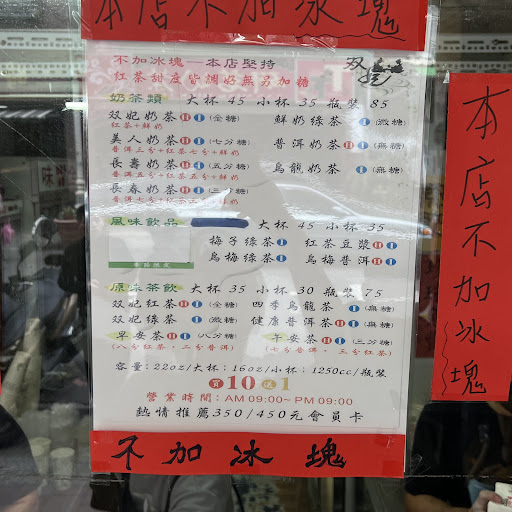 本店不加冰塊
不加冰塊—本店堅持
紅茶甜度皆調好無另加糖
双妃
奶茶類 大杯 45 小杯 35 瓶裝 85
双妃奶茶 H I (全糖) 鮮奶綠茶 I (微糖)
紅茶+鮮奶
美人奶茶 H I (七分糖) 普洱奶茶 H I (無糖)
普洱三分+紅茶七分+鮮奶
長壽奶茶 H I (五分糖) 烏龍奶茶 I (無糖)
普洱五分+紅茶五分+鮮奶
長春奶茶 H I (三分糖)
普洱七分+紅茶三分+鮮奶
風味飲品 大杯 45 小杯 35
梅子綠茶 I 紅茶豆漿 H I
烏梅綠茶 I 烏梅普洱 H I
原味茶飲 大杯 35 小杯 30 瓶裝 75
双妃紅茶 H I (全糖) 四季烏龍茶 I (無糖)
双妃綠茶 I (微糖) 健康普洱茶 H I (無糖)
早安茶 H I (八分糖) 午安茶 H I (三分糖)
(八分紅茶,二分普洱) (七分普洱,三分紅茶)
容量:22oz/大杯:16oz/小杯:1250cc/瓶裝
買10送1
營業時間:AM 09:00~PM 09:00
熱情推薦350/450元會員卡
不加冰塊
本店不加冰塊